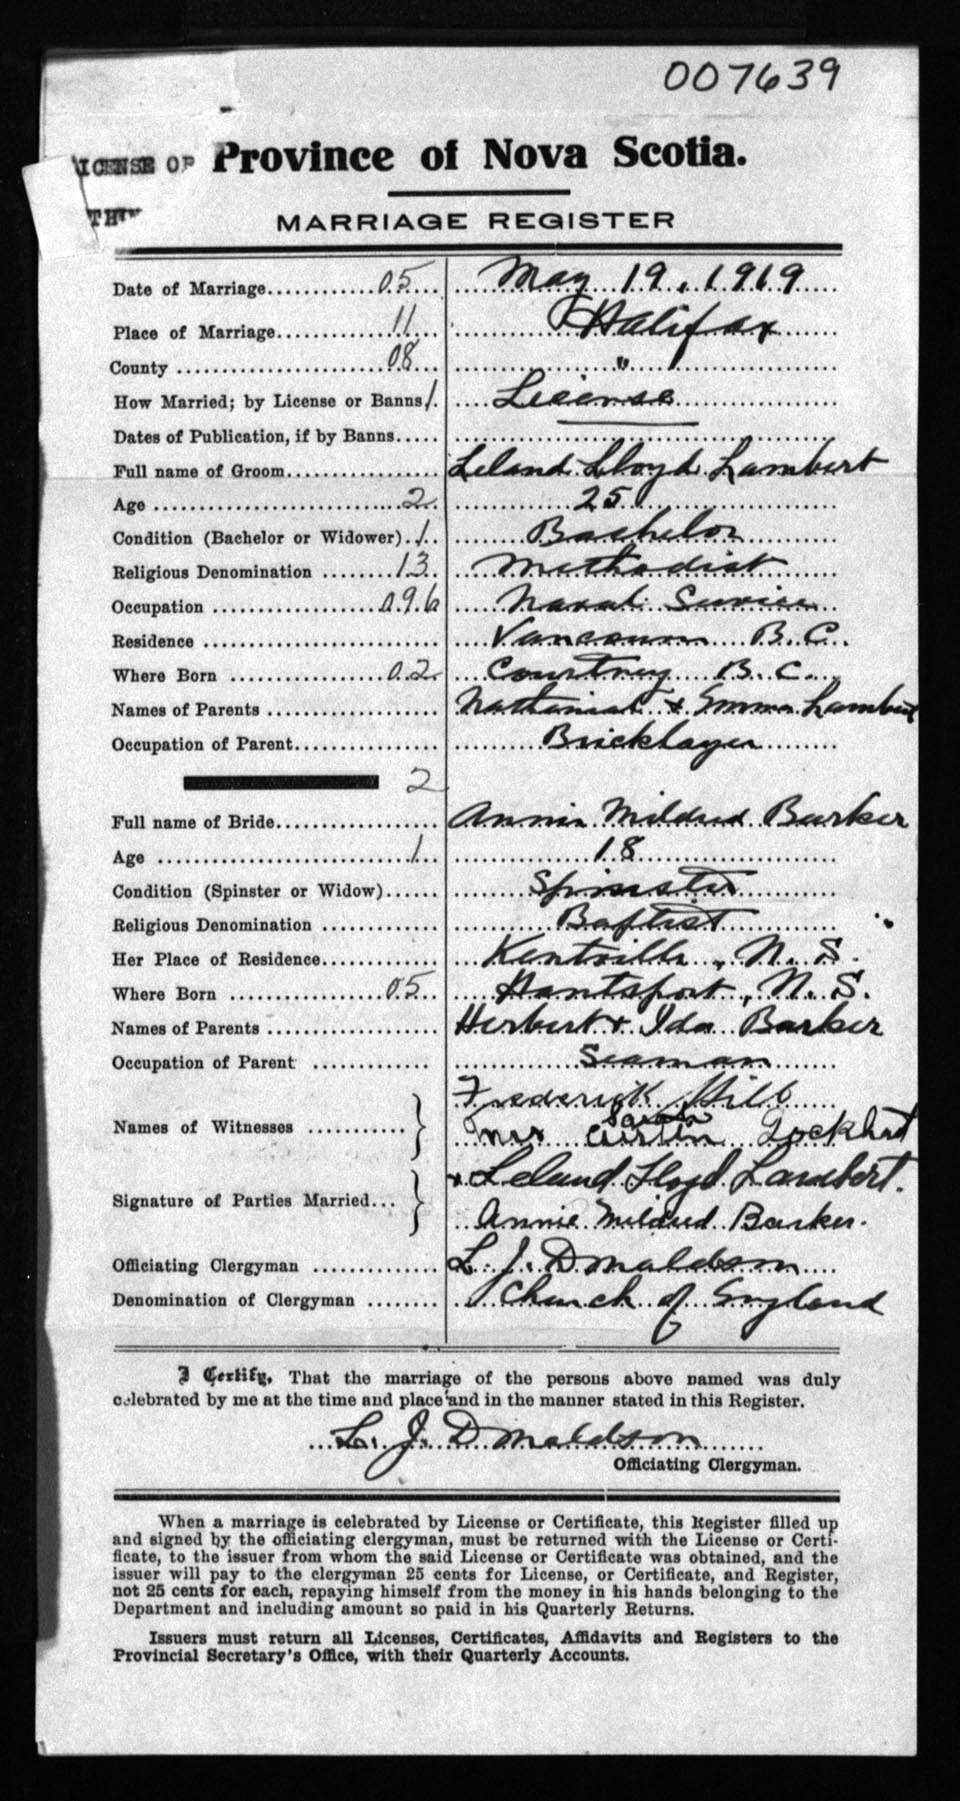 007639
ICENSE OF
Province of Nova Scotia.
MARRIAGE REGISTER
Date of Marriage............05.... May 19, 1919
Place of Marriage............11.... Halifax
County ............08.... "
How Married; by License or Banns 1. License
Dates of Publication, if by Banns.....
Full name of Groom............ Leland Lloyd Lambert
Age ............2. 25
Condition (Bachelor or Widower).1.. Bachelor
Religious Denomination ........13.. Methodist
Occupation ............096 Naval Service
Residence ............ Vancouver B.C.
Where Born ............02. Courtney B.C.
Names of Parents ............ Nathanial & Emma Lambert
Occupation of Parent............ Bricklayer
2
Full name of Bride............ Annie Mildred Barker
Age ............1.. 18
Condition (Spinster or Widow)...... Spinster
Religious Denomination ............ Baptist
Her Place of Residence............ Kentville, N.S.
Where Born ............05.. Hantsport, N.S.
Names of Parents ............ Herbert & Ida Barker
Occupation of Parent ............ Seaman
Frederick Hill
Names of Witnesses ........... Mrs Lockhart
Signature of Parties Married... x Leland Lloyd Lambert.
Annie Mildred Barker.
Officiating Clergyman ............ L. J. Donaldson
Denomination of Clergyman ........ Church of England
I Certify, That the marriage of the persons above named was duly
celebrated by me at the time and place and in the manner stated in this Register.
L. J. Donaldson
Officiating Clergyman.
When a marriage is celebrated by License or Certificate, this Register filled up
and signed by the officiating clergyman, must be returned with the License or Certi-
ficate, to the issuer from whom the said License or Certificate was obtained, and the
issuer will pay to the clergyman 25 cents for License, or Certificate, and Register,
not 25 cents for each, repaying himself from the money in his hands belonging to the
Department and including amount so paid in his Quarterly Returns.
Issuers must return all Licenses, Certificates, Affidavits and Registers to the
Provincial Secretary's Office, with their Quarterly Accounts.